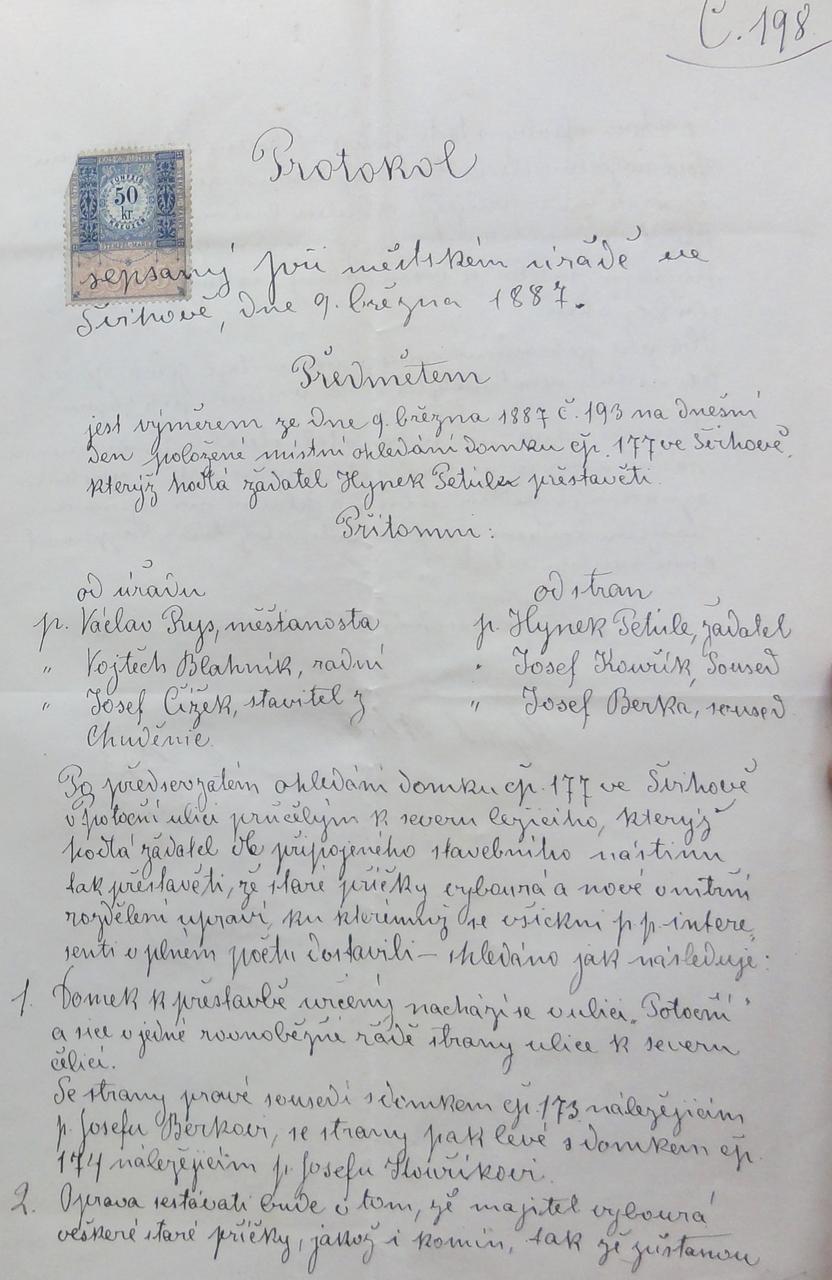 Č. 198
Protokol
50
kr
sepsaný při městském úřádě ve
Švihově, dne 9. března 1887.
Předmětem
jest výměrem ze dne 9. března 1887 č. 193 na dnešní
den položené místní ohledání domku čp. 177 ve Švihově,
kterýž hodlá žádatel Hynek Petule přestavěti.
Přítomni:
od úřadu
od stran
p. Václav Rys, měšťanosta
p. Hynek Petule, žádatel
„ Vojtěch Blahník, radní
„ Josef Kouřík, Soused
„ Josef Čížek, stavitel z
„ Josef Berka, soused
Chuděnic.
Po předsevzatém ohledání domku čp. 177 ve Švihově
v potoční ulici průčelým k severu ležícího, kterýž
hodlá žádatel dle připojeného stavebního nástinu
tak přestavěti, že staré příčky vybourá a nové vnitřní
rozdělení upraví, ku kterémuž se všickni p.p. intere„
senti v plném počtu dostavili – shledáno jak následuje:
1. Domek k přestavbě určený nachází se v ulici „Potoční"
a sice v jedné rovnoběžné řádě strany ulice k severu
čelící.
Se strany pravé sousedí s domkem čp. 173 náležejícím
p. Josefu Berkovi, se strany pak levé s domkem čp.
174 náležejícím p. Josefu Kouříkovi.
2. Oprava sestávati bude v tom, že majitel vybourá
veškeré staré příčky, jakož i komín, tak že zůstanou